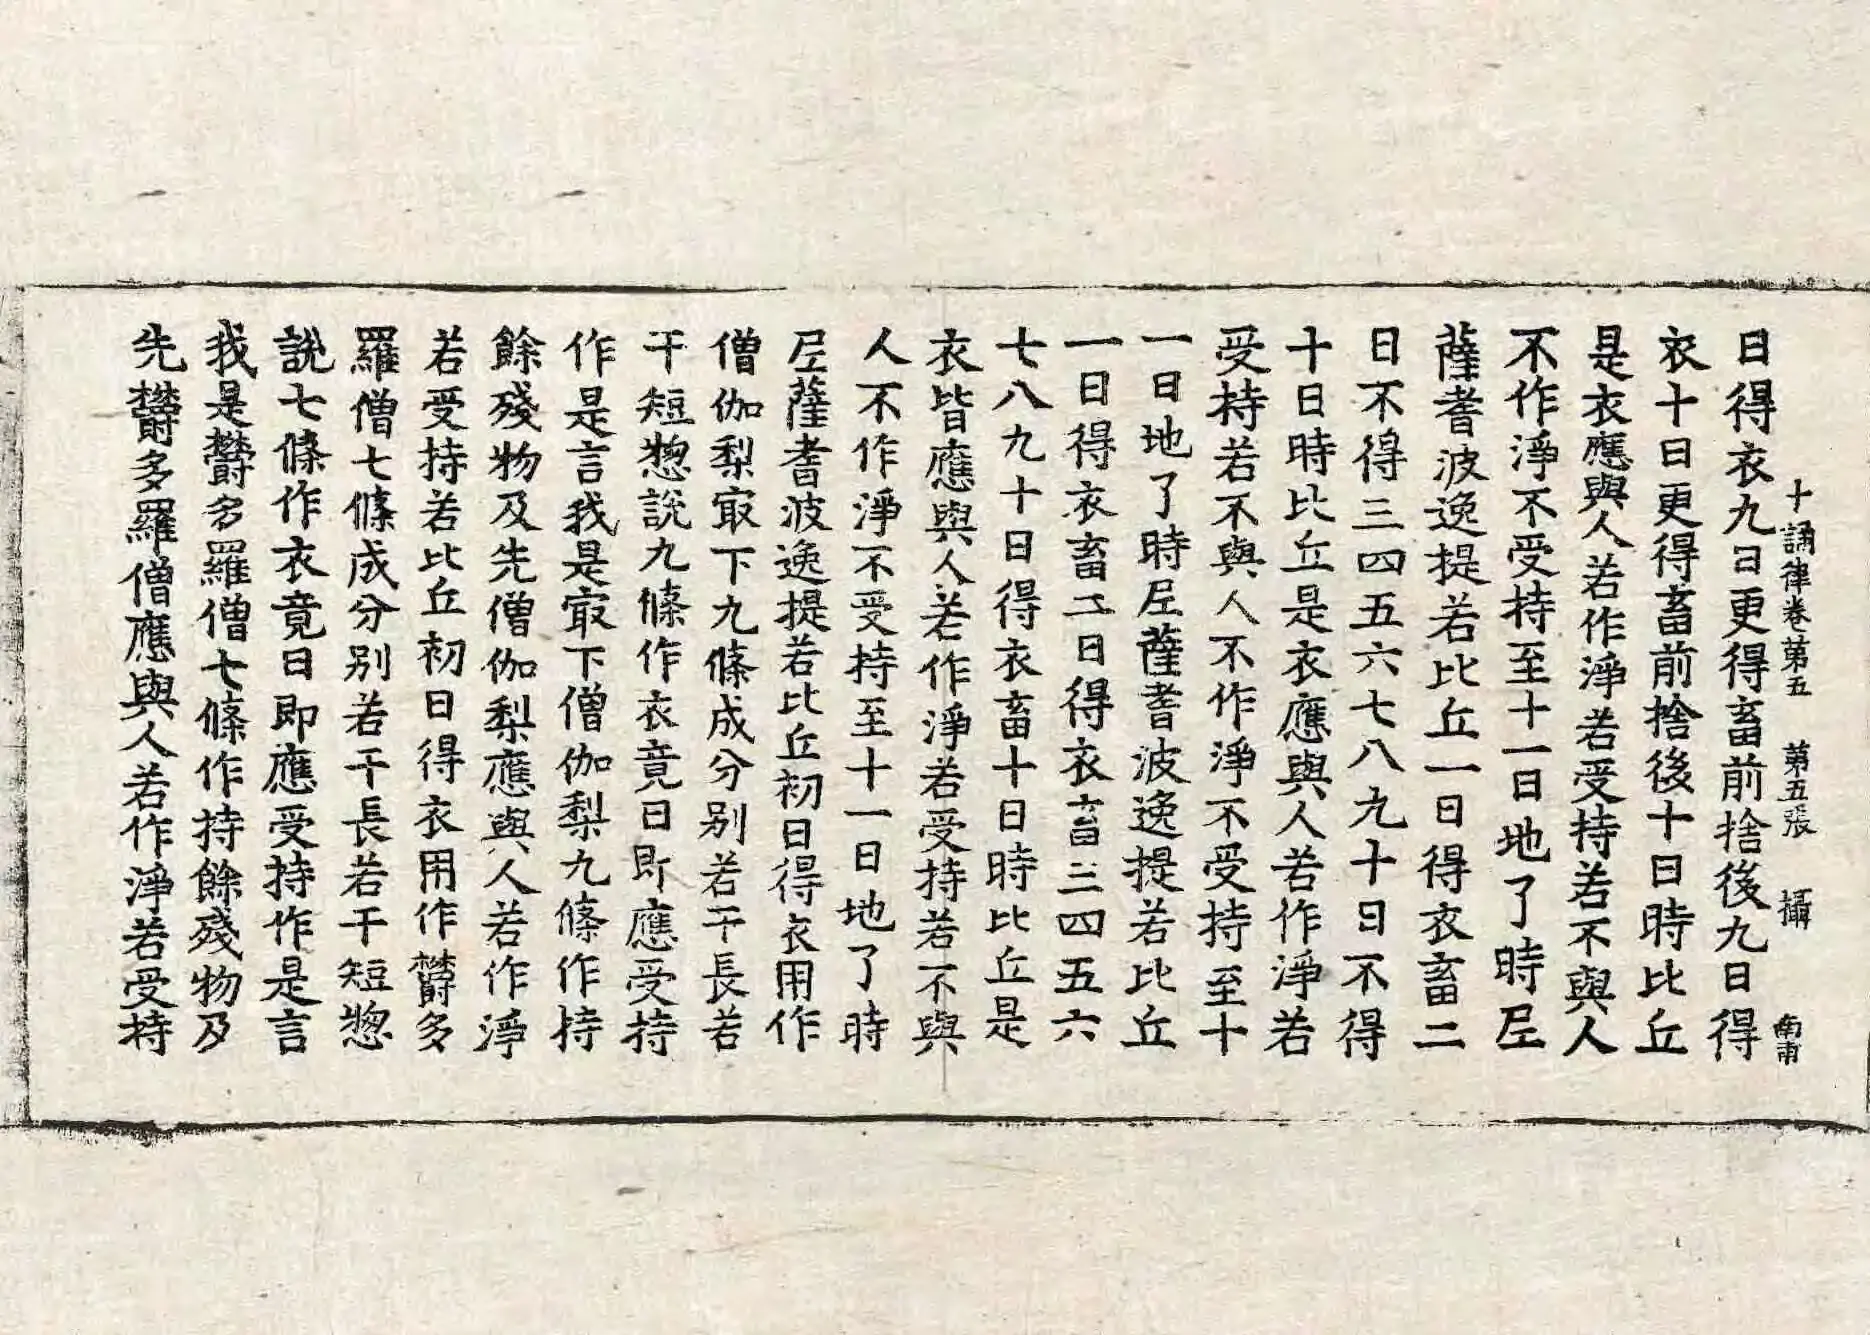 十誦律卷第五 第五張 攝 南甫
日得衣九日更得畜前捨後九日得
衣十日更得畜前捨後十日時比丘
是衣應與人若作淨若受持若不與人
不作淨不受持至十一日地了時尼
薩耆波逸提若比丘一日得衣畜二
日不得三四五六七八九十日不得
十日時比丘是衣應與人若作淨若
受持若不與人不作淨不受持至十
一日地了時尼薩耆波逸提若比丘
一日得衣畜二日得衣畜三四五六
七八九十日得衣畜十日時比丘是
衣皆應與人若作淨若受持若不與
人不作淨不受持至十一日地了時
尼薩耆波逸提若比丘初日得衣用作
僧伽梨㝡下九條成分別若干長若
干短惣說九條作衣竟日即應受持
作是言我是㝡下僧伽梨九條作持
餘殘物及先僧伽梨應與人若作淨
若受持若比丘初日得衣用作欝多
羅僧七條成分別若干長若干短惣
說七條作衣竟日即應受持作是言
我是欝多羅僧七條作持餘殘物及
先欝多羅僧應與人若作淨若受持